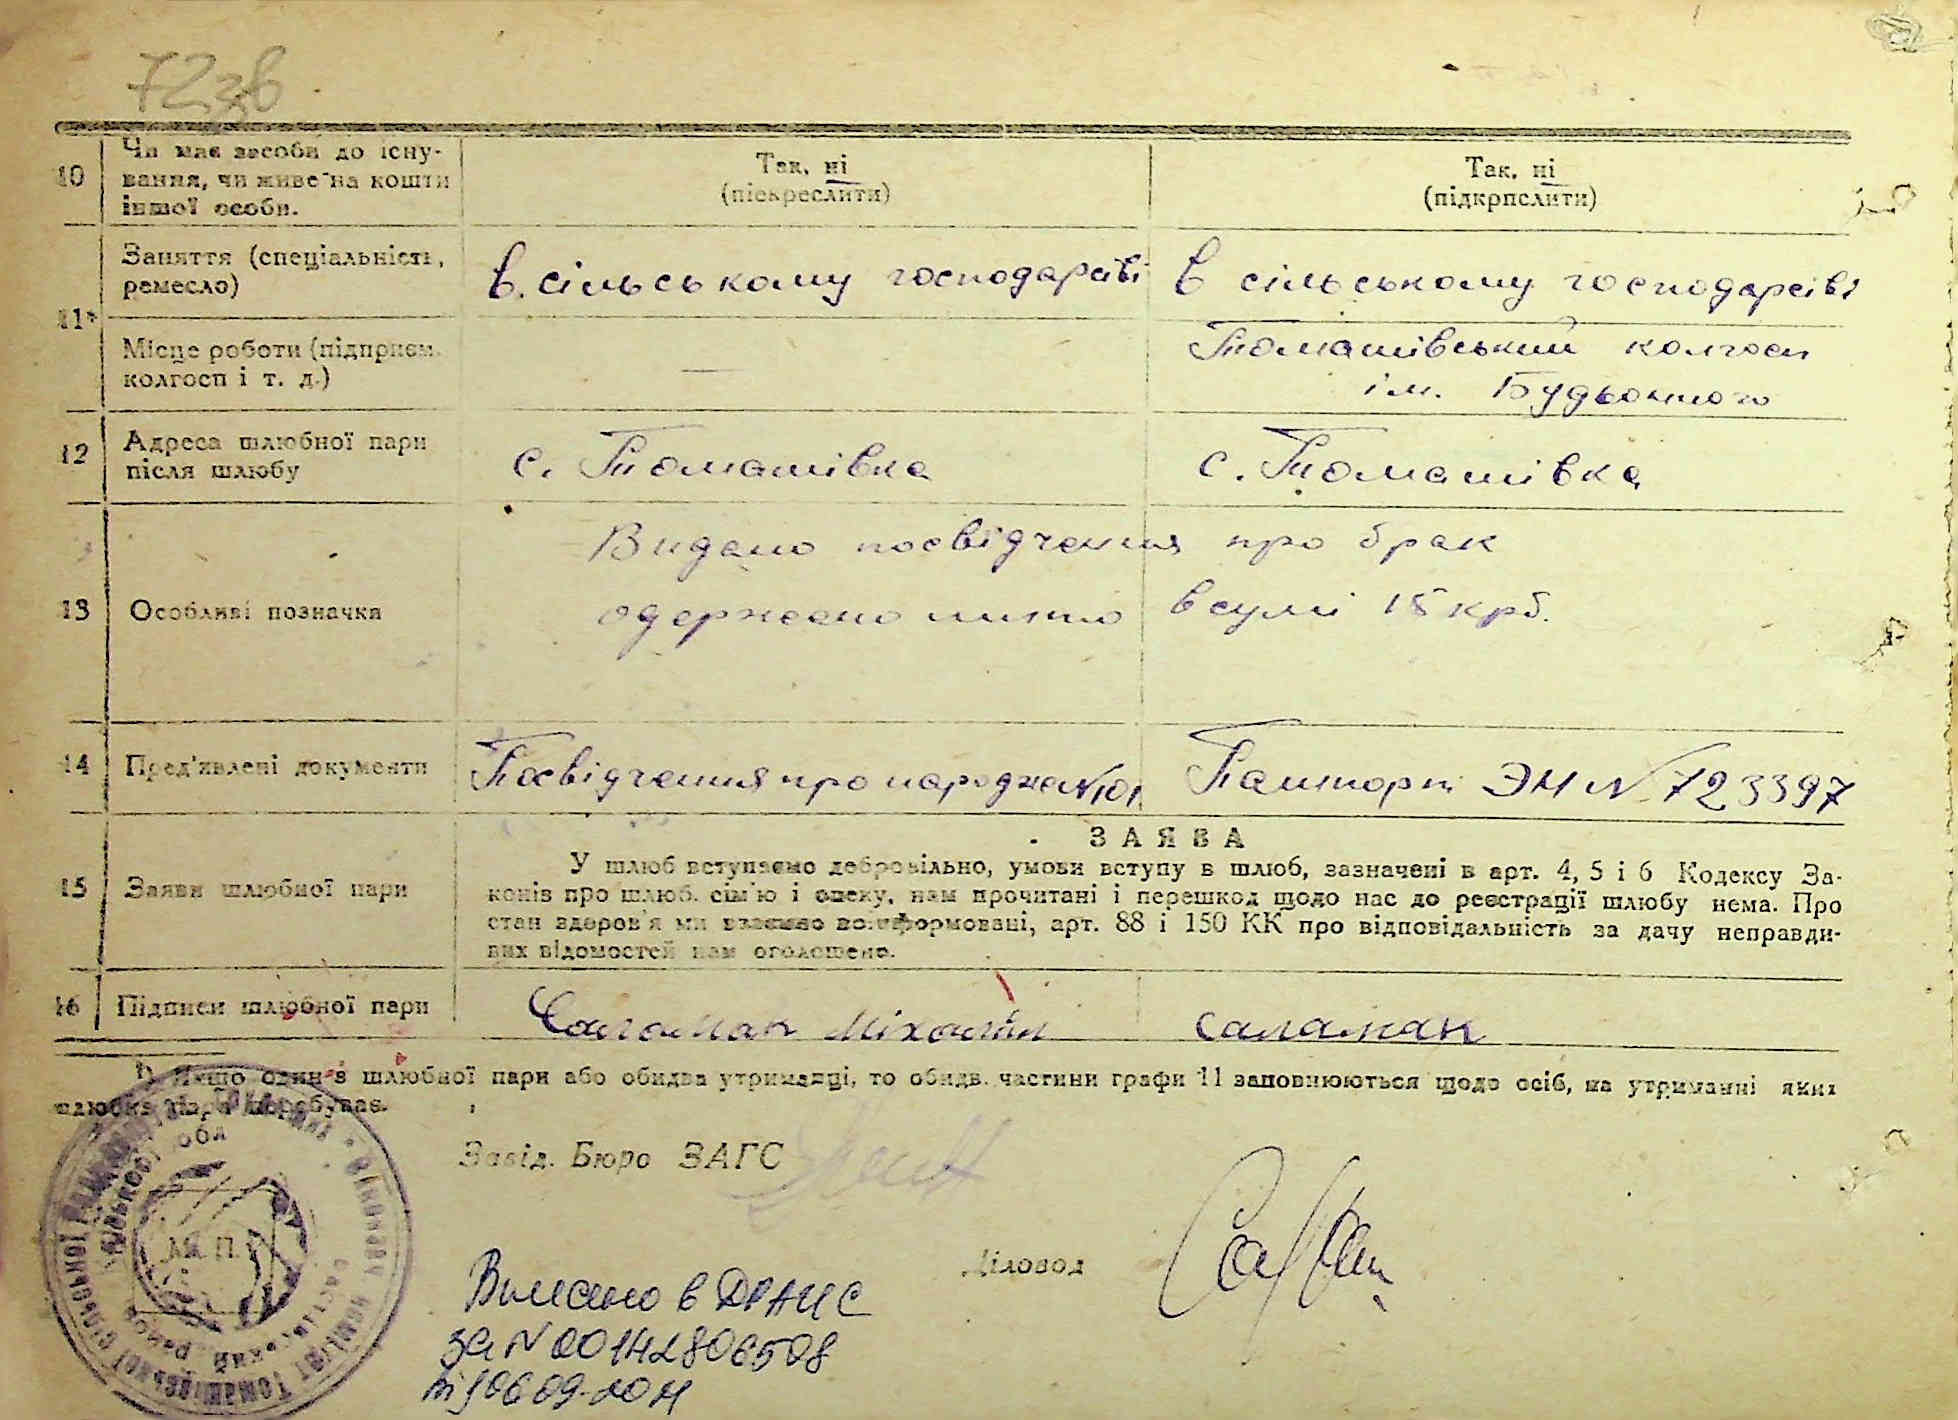 72зв
10
Чи має засоби до існу-
вання, чи живе на кошти
іншої особи.
Так, ні
(підкреслити)
Так, ні
(підкрпслити)
11
Заняття (спеціальність,
ремесло)
в сільському господарстві
в сільському господарстві
Місце роботи (підприєм.
колгосп і т. д.)
—
Томашівський колгосп
ім. Будьонного
12
Адреса шлюбної пари
після шлюбу
с. Томашівка
с. Томашівка
13
Особливі позначка
Видано посвідчення про брак
одержано мито в сумі 15 крб.
14
Пред'явлені документи
Посвідчення про народжен
Пашпорт ЭН № 723397
15
Заяви шлюбної пари
ЗАЯВА
У шлюб вступаємо добровільно, умови вступу в шлюб, зазначені в арт. 4, 5 і 6 Кодексу За-
конів про шлюб. сім'ю і опеку, нам прочитані і перешкод щодо нас до реєстрації шлюбу нема. Про
стан здоров'я ми взаємно поінформовані, арт. 88 і 150 КК про відповідальність за дачу неправди-
вих відомостей нам оголошено.
16
Підписи шлюбної пари
Саламак Міхаіл
саламак
1) Якщо один з шлюбної пари або обидва утриманці, то обидв. частини графи 11 заповнюються щодо осіб, на утриманні яких
шлюбна пара перебуває.
Завід. Бюро ЗАГС
М. П.
Діловод
Внесено в ДРАЦС
за № 00142806508